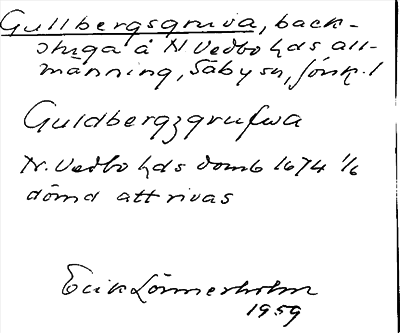 Gullbergsgruva, back-
stuga å N Vedbo hds all-
männing, Säby sn, Jönk. l
Guldbergzgrufwa
N. Vedbo hds domb 1674 1/6
dömd att rivas
Erik Lönnerholm
1959